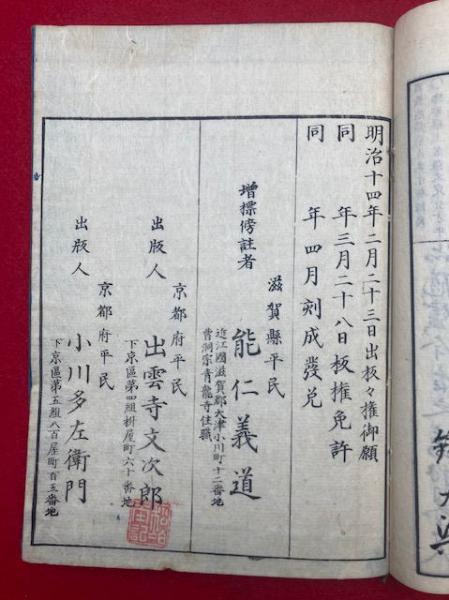 明治十四年二月二十三日出板々權御願
同　年三月二十八日板權免許
同　年四月刻成發兌
滋賀縣平民
增標傍註者　能仁義道
近江國滋賀郡大津小川町十二番地
曹洞宗青龍寺住職
京都府平民
出版人　出雲寺文次郎
下京區第四組桝屋町六十番地
京都府平民
出版人　小川多左衛門
下京區第五組八百屋町百五番地